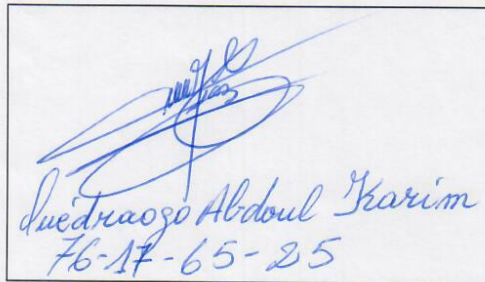 Ouédraogo Abdoul Karim
76-17-65-25